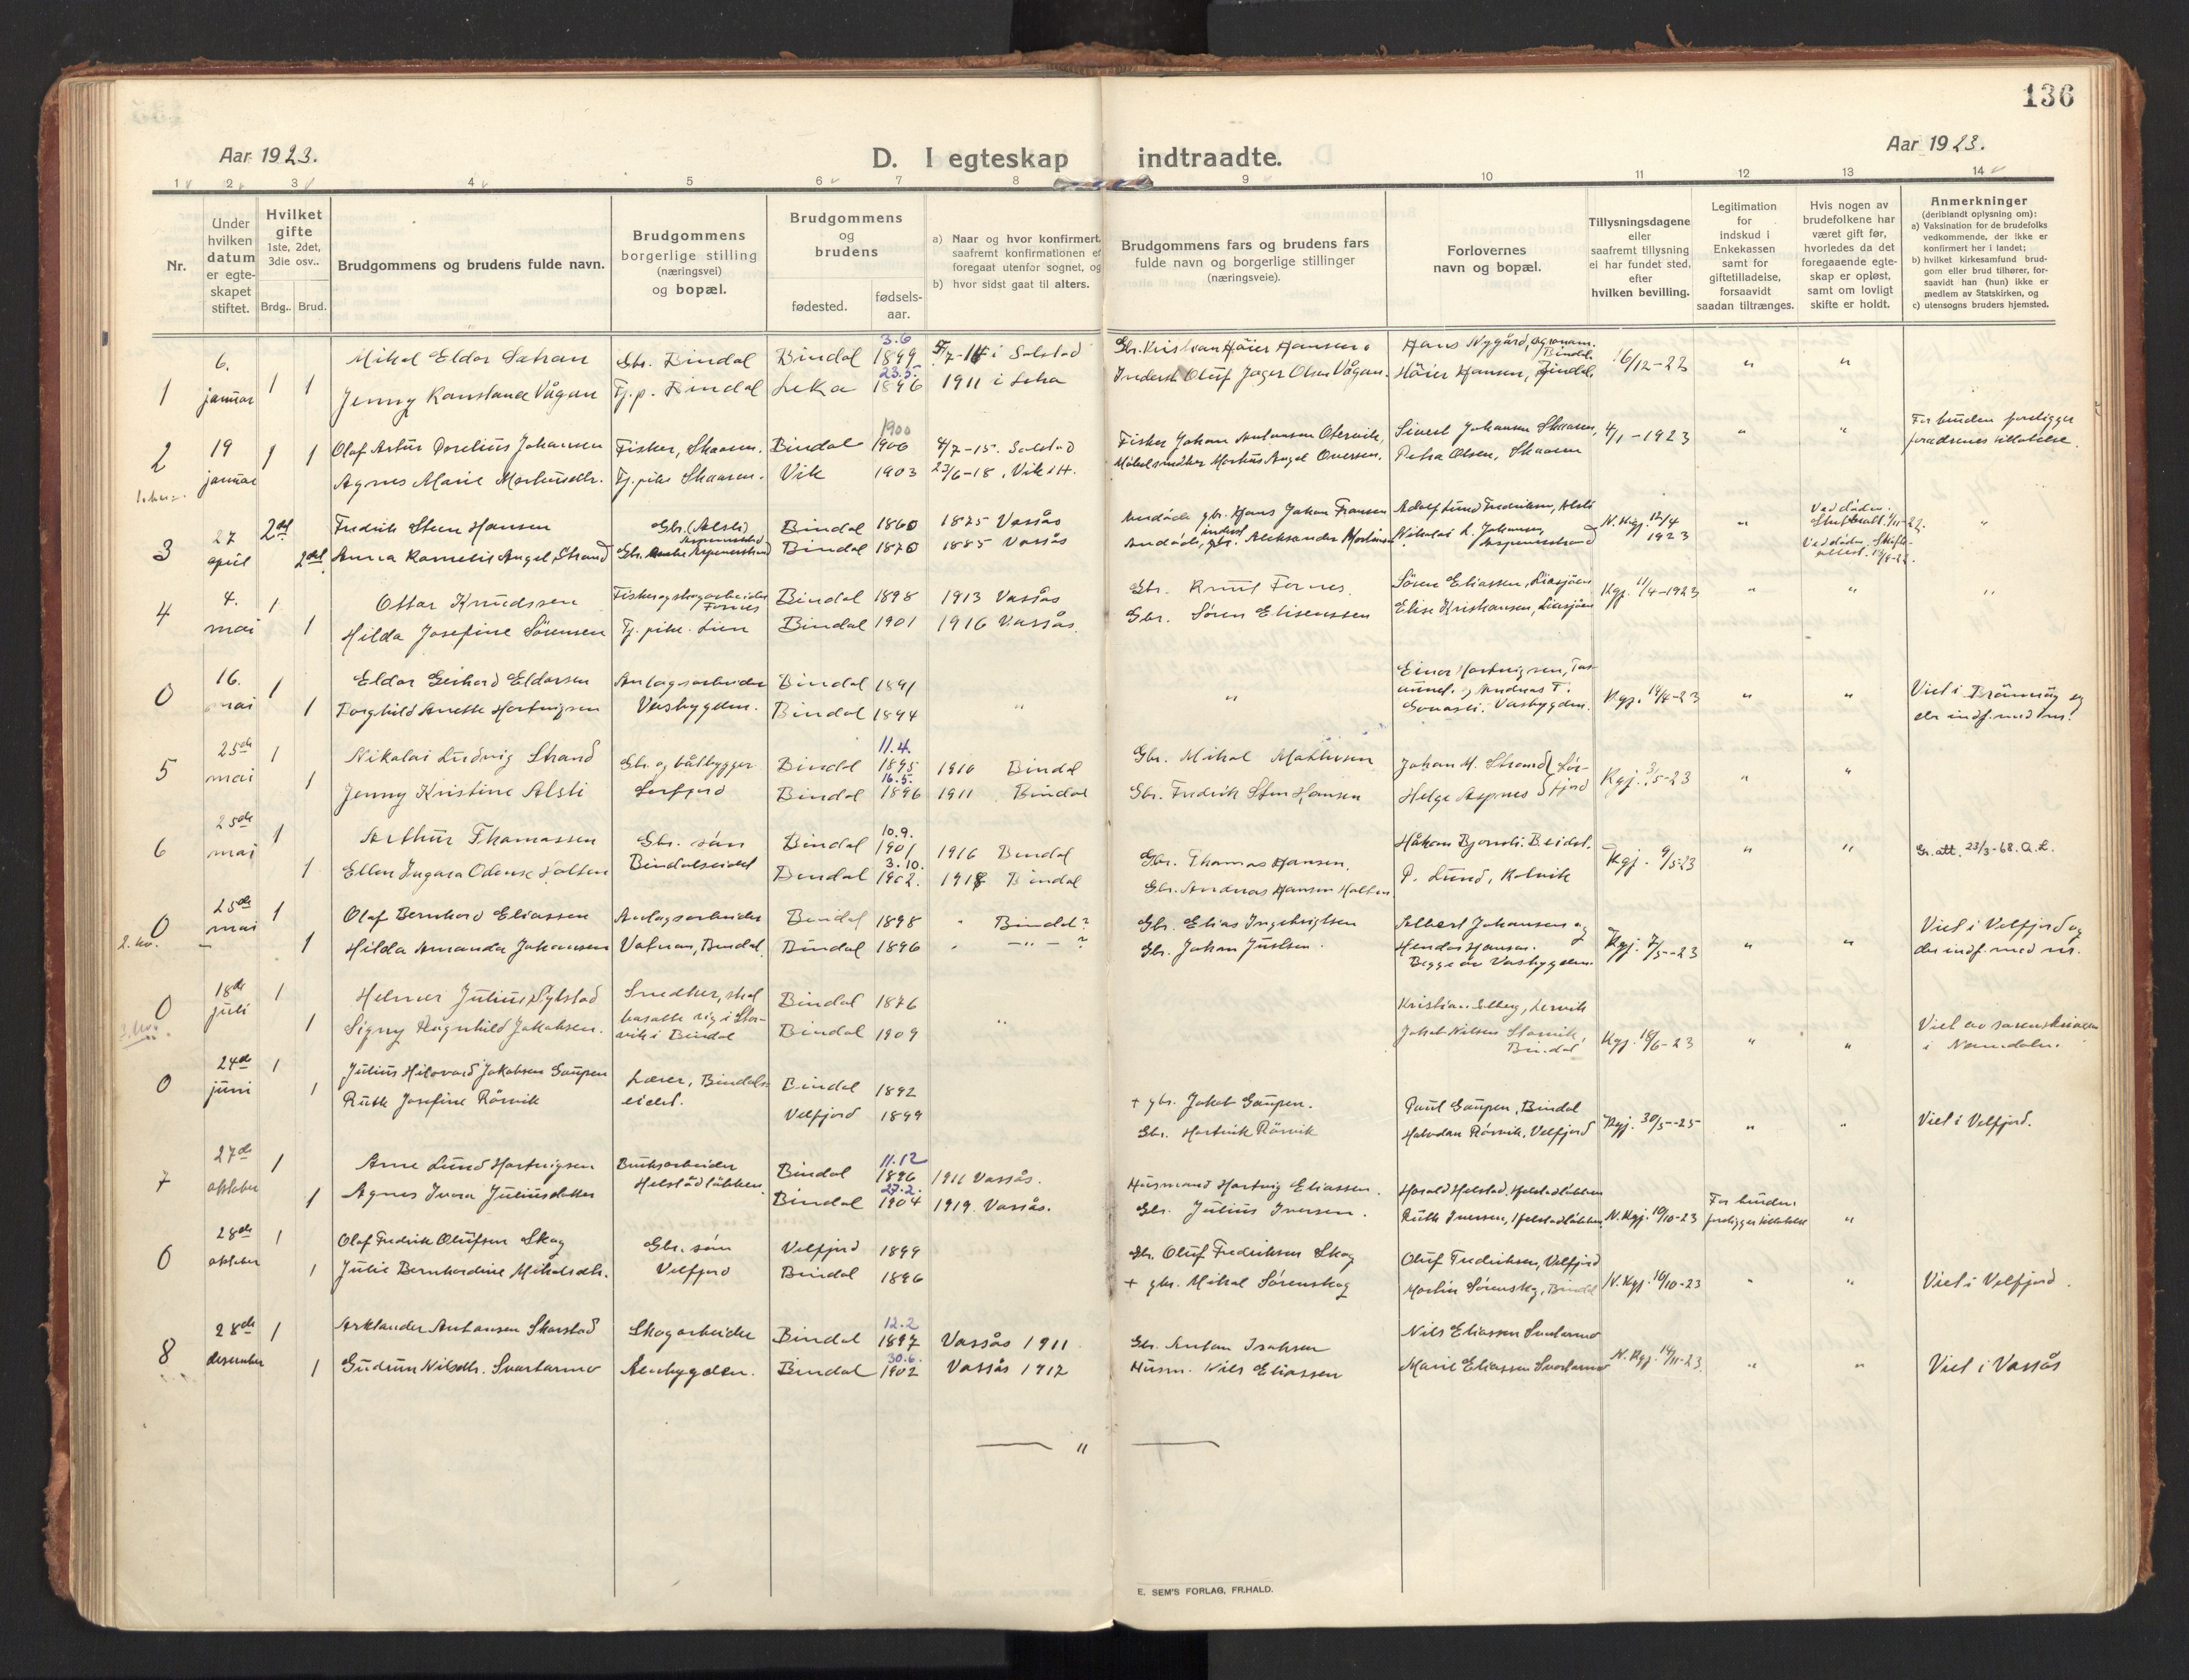 136
Aar 1923.
D. I egteskap indtraadte.
Aar 1923.
1 2 3 4 5 6 7 8 9 10 11 12 13 14
Nr.
Under hvilken datum er egte-skapet stiftet.
Hvilket gifte 1ste, 2det, 3die osv..
Brdg.. Brud.
Brudgommens og brudens fulde navn.
Brudgommens borgerlige stilling (næringsvei) og bopæl.
Brudgommens og brudens
fødested.
fødsels-aar.
a) Naar og hvor konfirmert, saafremt konfirmationen er foregaat utenfor sognet, og
b) hvor sidst gaat til alters.
Brudgommens fars og brudens fars fulde navn og borgerlige stillinger (næringsveie).
Forlovernes navn og bopæl.
Tillysningsdagene eller saafremt tillysning ei har fundet sted, efter hvilken bevilling.
Legitimation for indskud i Enkekassen samt for giftetilladelse, forsaavidt saadan tiltrænges.
Hvis nogen av brudefolkene har været gift før, hvorledes da det foregaaende egte-skap er opløst, samt om lovligt skifte er holdt.
Anmerkninger (deriblandt oplysning om):
a) Vaksination for de brudefolks vedkommende, der ikke er konfirmert her i landet;
b) hvilket kirkesamfund brud-gom eller brud tilhører, for-saavidt han (hun) ikke er medlem av Statskirken, og
c) utensogns bruders hjemsted.
3.6
6. Mikal Eldor Gbr. Bindal Bindal 1899 i Solstad Gbr. Kristian Höier Hansen Hans Nygård, agronom. Bindal. 16/12-22 " "
23.5.
1 januar 1 1 Jenny Konstanse Vågan Tj.p. Bindal Leka 1896 1911 i Leka Oluf Jager Olsen Vågan. Höier Hansen, Bindal.
1900
2 19 1 1 Olaf Artur Dorelius Johansen Fisker, Skaaren. Bindal 1900 4/7-15. Solstad Fisker Johan Antonsen Otervik, Sivert Johansen Skaaren, 4/1-1923 " " For bruden foreligger
januar Agnes Marie Tj. pike Skaaren. Vik 1903 23/6-18, Vik i H. Petra Olsen, Skaaren forældrenes tillatelse.
27 2det Fredrik Steen Hansen Gbr. (Alsli) Bindal 1860 1875 Vassås gbr. Hans Johan Fransen Adolf Lund Fredriksen, Alsli N. Kgj. 12/4 1923 " Ved døden.
3 april 2det Anna Kornelie Angel Strand Bindal 1870 1885 Vassås Aleksander Nikolai L. Johansen, Ved døden. Skifte-
4. 1 Ottar Knudssen Fornes Bindal 1898 1913 Vassås Gbr. Knut Fornes. Søren Eliassen, Kgj. 11/4-1923 " " "
4 mai 1 Hilda Josefine Sørensen Tj. pike. Lien Bindal 1901 1916 Vassås. Gbr. Søren Elisenssen Elise Kristiansen,
0 16. 1 Eldor Gerhard Eldorsen Anlagsarbeider Bindal 1891 " " Einar Hartvigsen, Kgj. 14/4-23 " " Viet i Brönnöy og
mai 1 Borghild Anette Hartvigsen Vasbygden. Bindal 1894 Vasbygden. der indf. med nr.
11.4.
25de 1 Nikolai Ludvig Strand Gbr. og båtbygger Bindal 1895 1910 Bindal Gbr. Mikal Mathisen Johan M. Strand Sör- Kgj. 3/5-23 " "
16.5.
5 mai 1 Jenny Kristine Alsli Sørfjord Bindal 1896 1911 Bindal Gbr. Fredrik Sten Hansen Helge Aspnes fjord
10.9.
25de 1 Arthur Thomassen Gbr. sön Bindal 1901 1916 Bindal Gbr. Thomas Hansen. Håkon Kgj. 9/5-23 " " 23/3-68.
3.10.
6 mai 1 Ellen Ingara Odense Holten Bindalseidet Bindal 1902. 1918 Bindal Gbr. Andreas Hansen Holten P. Lund, Kolvik
0 25de mai 1 Olaf Bernhard Eliassen Anlagsarbeider Bindal 1898 " Bindal? Gbr. Elias Ingebrigtsen Albert Johansen og Kgj. 7/5-23 " " Viet i Velfjord og
1 Hilda Amanda Johansen Bindal. Bindal 1896 " -"- ? Gbr. Johan Justsen. Begge av Vasbygden. der indf. med nr.
0 18de juli 1 Helmer Julius Sylstad Snedker, skal Bindal 1876 " Kristian Kgj. 18/6-23 " " Viet av sorenskriveren
1 Signy Ragnhild Jakobsen. bosætte sig i Stor-vik i Bindal Bindal 1909 Jakob Nilsen Storvik, Bindal i Namdalen.
0 24de juni 1 Julius Hilovard Jakobsen Gaupen Lærer, Bindals- Bindal 1892 + gbr. Jakob Gaupen. Paul Gaupen, Bindal Kgj. 30/5-25 " " Viet i Velfjord.
1 Ruth Josefine Rörvik eidet. Velfjord 1899 Gbr. Hartvik Rörvik Halvdan Rörvik, Velfjord
11.12
27de 1 Arne Lund Hartvigsen Bruksarbeider Bindal 1896 1911 Vassås. Husmand Hartvig Eliassen. Harald Helstad, Helstadløkken For bruden
27.2.
7 oktober 1 Agnes Ivara Juliusdatter Helstadløkken. Bindal 1904 1919. Vassås. Gbr. Julius Iversen. Ruth Iversen, Helstadløkken N. Kgj. 10/10-23 foreligger tillatelse "
0 28de 1 Olaf Fredrik Olufsen Skog Gbr. sön Velfjord 1899 Gbr. Oluf Fredriksen Skog Oluf Fredriksen, Velfjord N. Kgj. 16/10-23 " " Viet i Velfjord.
oktober 1 Julie Bernhardine Mikalsdtr. Velfjord Bindal 1896 + gbr. Mikal Sörenskog Martin Sörenskog, Bindal
12.2
28de 1 Antonsen Skarstad Skogarbeider Bindal 1897 Vassås 1911 Gbr. Anton Isaksen Nils Eliassen Svartarmo N. Kgj. 14/11-23. " " Viet i Vassås
30.6.
8 desember 1 Gudrun Nilsdtr. Svartarmo Aabygden. Bindal 1902 Vassås 1917 Husm. Nils Eliassen Marie Eliassen Svartarmo
— " —
E. SEM'S FORLAG, FR.HALD.